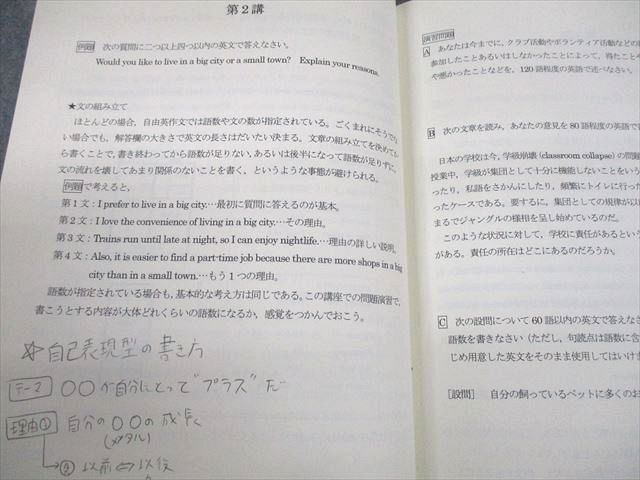 第2講
例題 次の質問に二つ以上四つ以内の英文で答えなさい。
Would you like to live in a big city or a small town? Explain your reasons.
★文の組み立て
ほとんどの場合，自由英作文では語数や文の数が指定されている。ごくまれにそうでな
い場合でも，解答欄の大きさで英文の長さはだいたい決まる。文章の組み立てを決めてか
ら書くことで，書き終わってから語数が足りない，あるいは後半になって語数が足りずに，
文の流れを壊してあまり関係のないことを書く，というような事態が避けられる。
例題で考えると，
第1文：I prefer to live in a big city.…最初に質問に答えるのが基本。
第2文：I love the convenience of living in a big city.…その理由。
第3文：Trains run until late at night, so I can enjoy nightlife.…理由の詳しい説明。
第4文：Also, it is easier to find a part-time job because there are more shops in a big
city than in a small town.…もう1つの理由。
語数が指定されている場合も，基本的な考え方は同じである。この講座での問題演習で，
書こうとする内容が大体どれくらいの語数になるか，感覚をつかんでおこう。
☆自己表現型の書き方
テーマ ○○が自分にとって"プラス"だ
理由① 自分の○○の成長
(メンタル)
→② 以前⇔以後
演習問題
A あなたは今までに，クラブ活動やボランティア活動などの
参加したことあるいはしなかったことによって，得たことや
や悪かったことなどを，120語程度の英語で述べなさい。
B 次の文章を読み，あなたの意見を80語程度の英語で
日本の学校は今，学級崩壊 (classroom collapse) の問題
授業中，学級が集団として十分に機能しないことをいう
ったり，私語をさかんにしたり，頻繁にトイレに行った
ったケースである。要するに，集団としての規律が以
まるでジャングルの様相を呈し始めているのだ。
このような状況に対して，学校に責任があるという
がある。責任の所在はどこにあるのだろうか。
C 次の設問について60語以内の英文で答えなさ
語数を書きなさい（ただし，句読点は語数に含
じめ用意した英文をそのまま使用してはいけま
［設問］ 自分の飼っているペットに多くのお